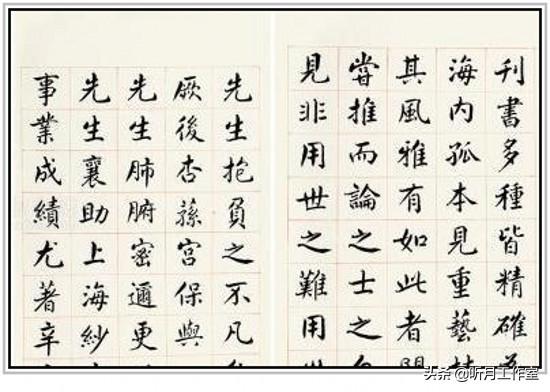 刊書多種皆精確
海內孤本見重藝
其風雅有如此者
嘗推而論之士之
見非用世之難用世
先生抱負之不凡
厥後杏蓀宮保與
先生肺腑密邇更
先生襄助上海紗
事業成績尤著辛
头条@听月工作室